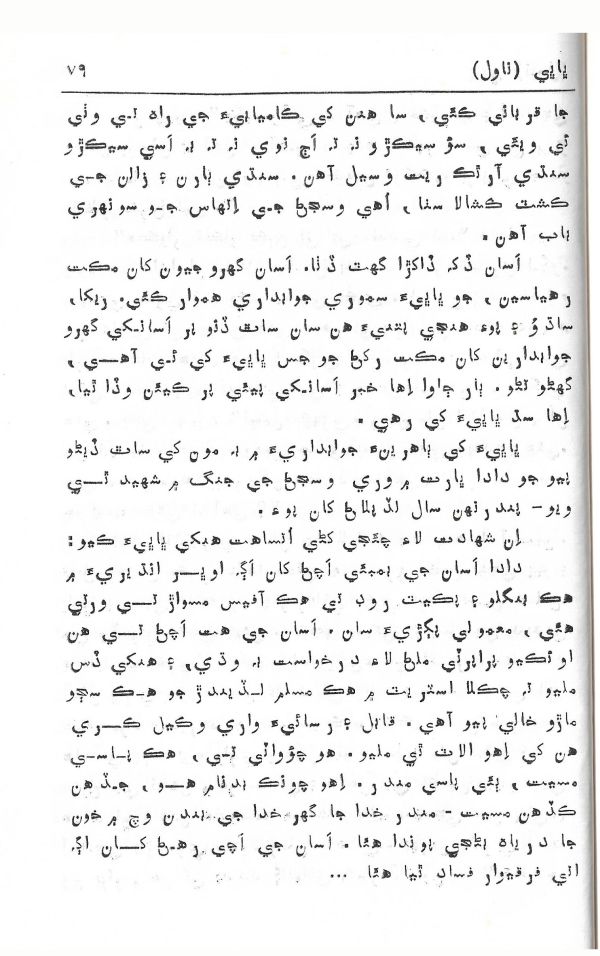 پاپي (ناول) ٧٩
جا قرباني ڪئي، سا هنن کي ڪاميابيءَ جي راه تي وٺي
ئي ويئي، سؤ سيڪڙو نہ تہ اڄ نوي نہ تہ بہ اَسي سيڪڙو
سنڌي آرٿڪ ريت وسيل آهن. سنڌي ٻارن ۽ زالن جي
ڪشت ڪشالا سٺا، اُهي وسڃڻ جي اِتهاس جو سونهري
باب آهن.
اَسان ڏک ڏاکڙا گهٽ ڏٺا. اَسان گهرو جيون کان مڪت
رهياسين، جو ڀاڀيءَ سموري جوابداري هموار ڪئي. ريکا،
ساڌوُ ۽ پوءِ هنجي پتنيءَ هن سان ساٿ ڏنو پر اَسانکي گهرو
جوابدارين کان مڪت رکڻ جو جس ڀاڀيءَ کي ئي آهي،
گهڻو تڻو. ٻار ڄاوا اِها خبر اَسانکي پيئي پر ڪيئن وڏا ٿيا،
اِها سڌ ڀاڀيءَ کي رهي.
ڀاڀيءَ کي ٻاهرينءَ جوابداريءَ ۾ بہ مون کي ساٿ ڏيڻو
پيو جو دادا ڀارت ۾ وري وسڃڻ جي جنگ ۾ شهيد ٿي
ويو- پندرنهن سال لڏپلاڻ کان پوءِ.
اِن شهادت لاءِ چئجي کڻي اُتساهت هنکي ڀاڀيءَ ڪيو:
دادا اَسان جي بمبئي اَچڻ کان اڳہ اوير انڌيريءَ ۾
هڪ بنگلو ۽ بڪيٽ روڊ تي هڪ آفيس مسواڙ تي ورتي
هئي، معمولي پڳڙيءَ سان. اَسان جي هت اَچڻ تي هن
اوٽڪيو پراپرٽي ملڻ لاءِ درخواست بہ وڌي، ۽ هنکي ڏس
مليو تہ چڪلا اسٽريٽ ۾ هڪ مسلم لڏيندڙ جو هڪ سڄو
ماڙو خالي پيو آهي. قابل ۽ رسائيءَ واري وڪيل ڪري
هن کي اِهو الاٽ ٿي مليو. هو چؤواٽي تي، هڪ پاسي
مسيت، ٻئي پاسي مندر. اِهو چونڪ بدنام هو، جڏهن
ڪڏهن مسيت - مندر خدا جا گهر خدا جي بندن وچ ۾ خون
جا درياه بڻجي پوندا هئا. اَسان جي اَچي رهڻ کان اڳہ
اتي فرقيوار فساد ٿيا هئا ...